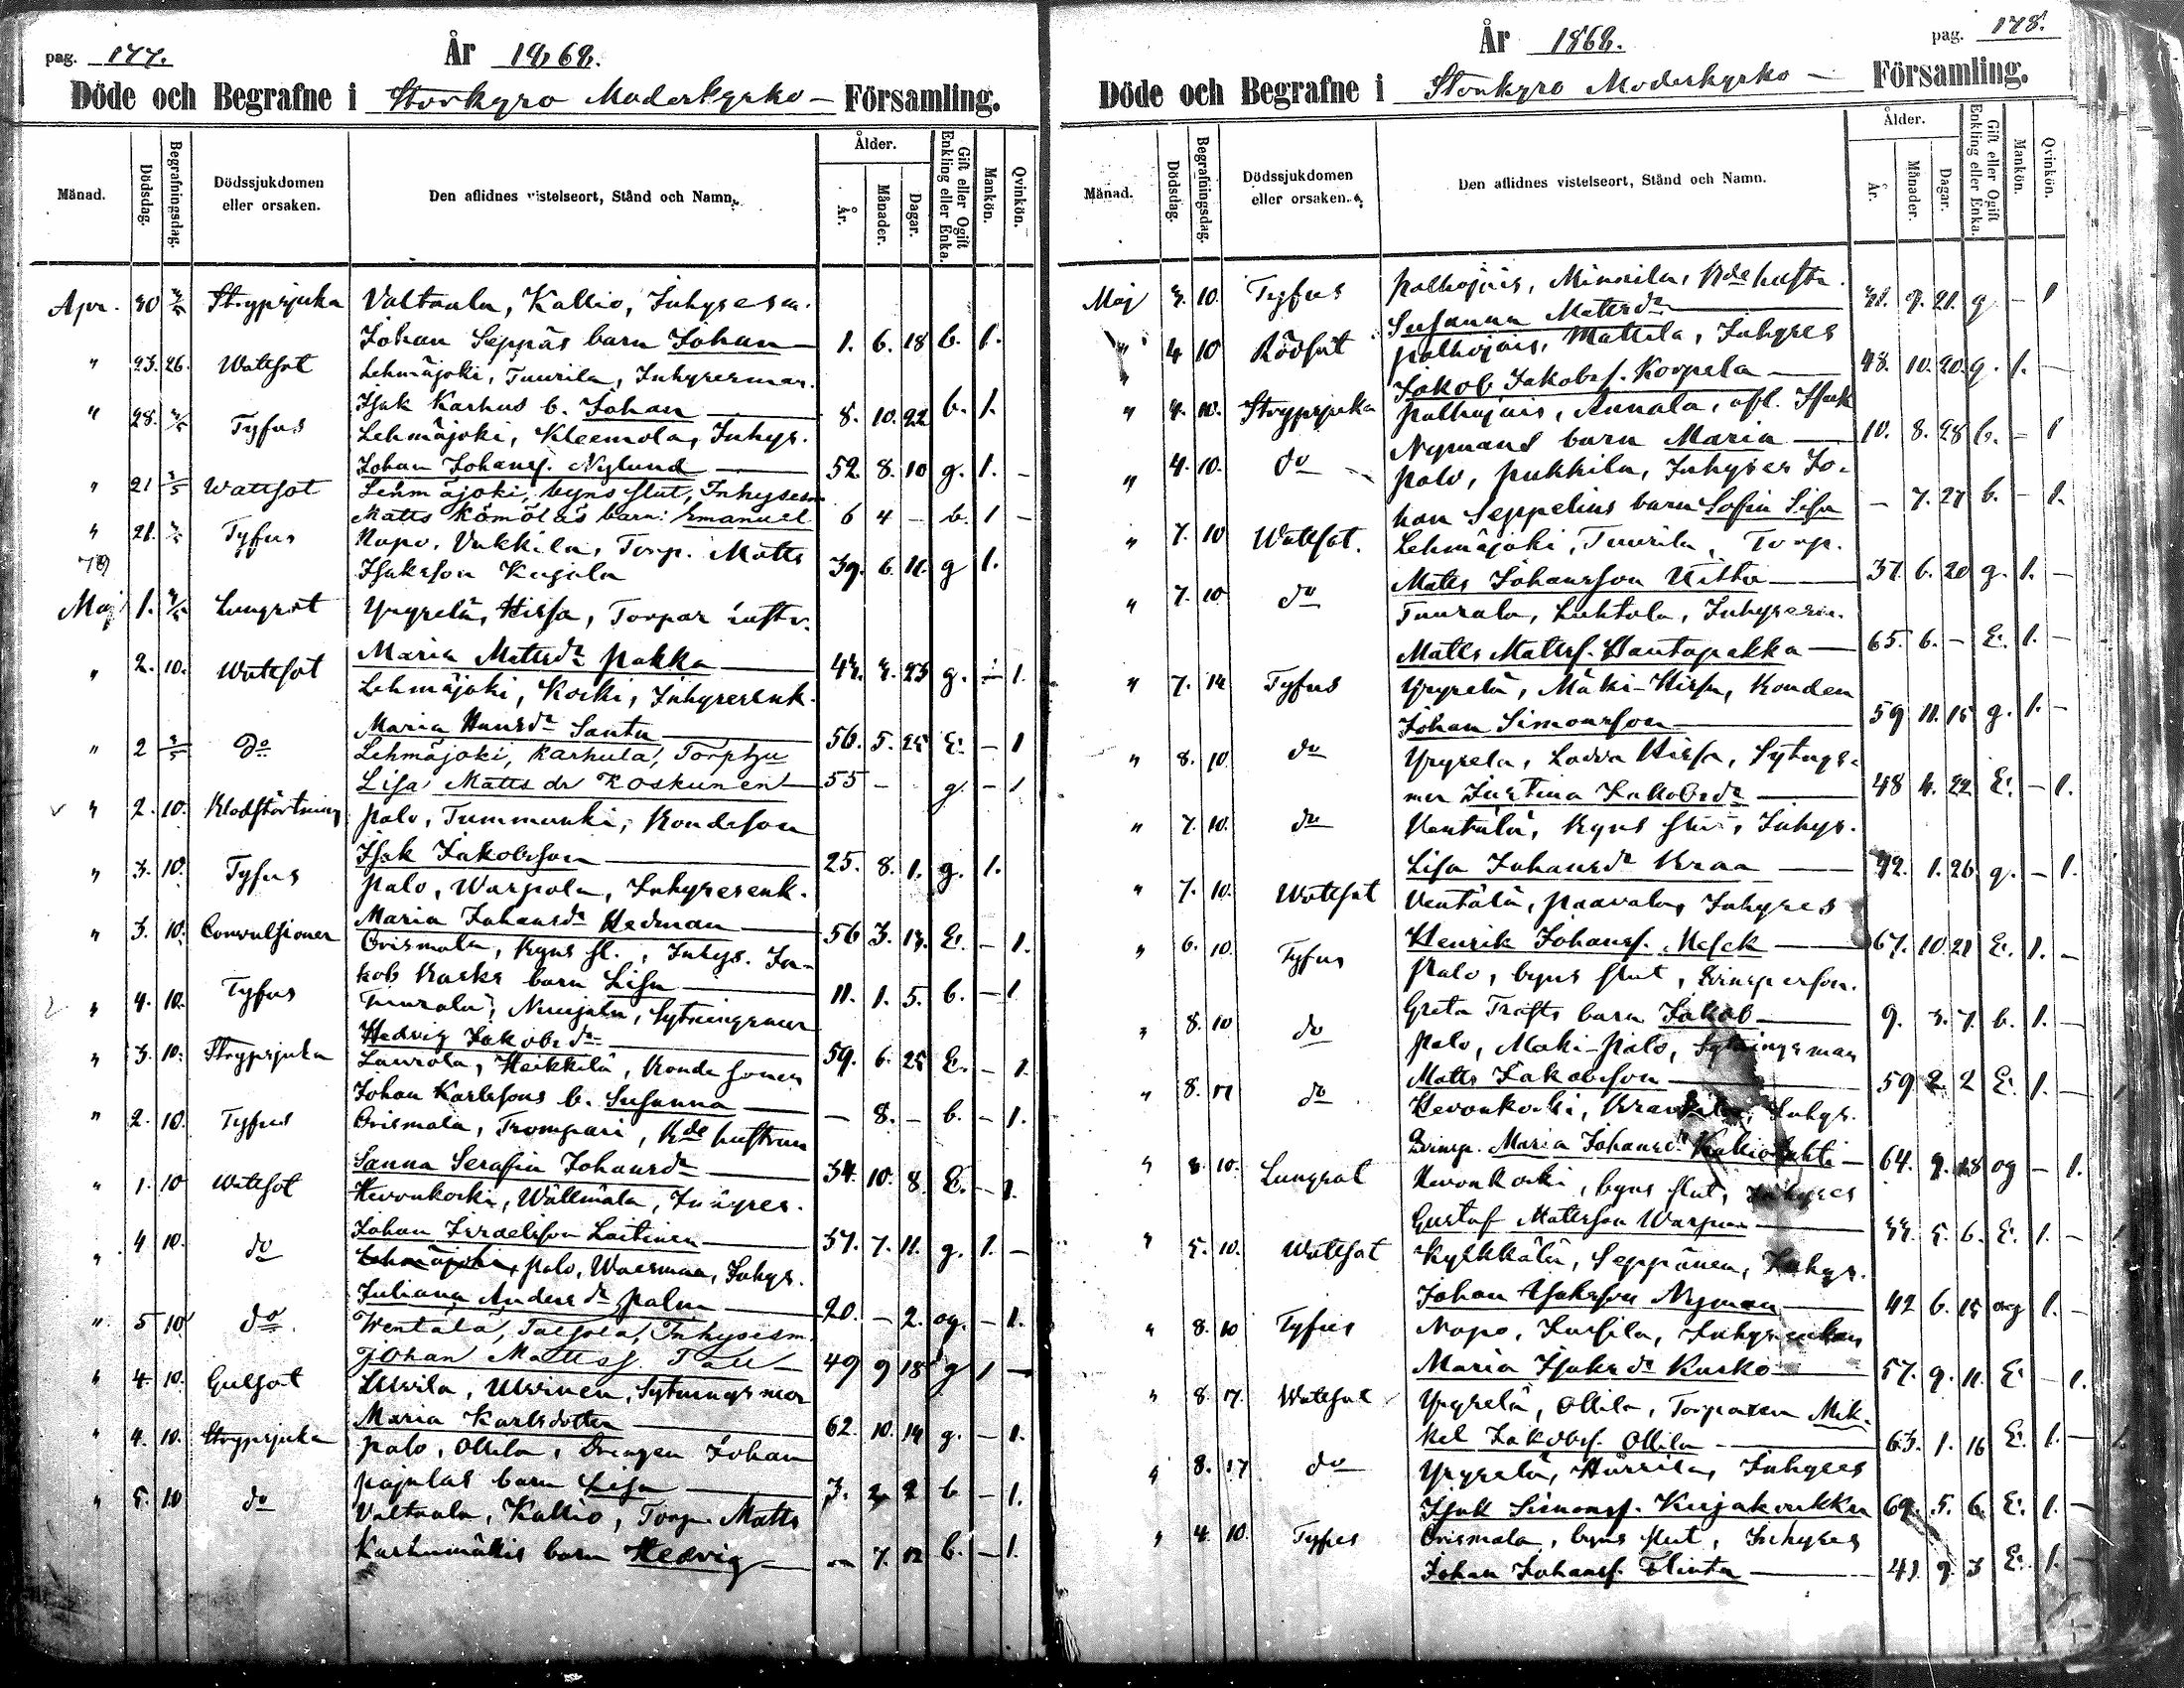 pag. 177.
År 1868.
Döde och Begrafne i Storkyro Moderkyrko- Församling.
Månad.
Dödsdag.
Begrafningsdag.
Dödssjukdomen eller orsaken.
Den aflidnes vistelseort, Stånd och Namn.
Ålder.
År.
Månader.
Dagar.
Gift eller Ogift Enkling eller Enka.
Mankön.
Qvinkön.
Apr. 30 3/5 Strypsjuka Valtaala, Kallio, Inhysesm.
Johan Seppäs barn Johan 1. 6. 18 b. 1.
" 23. 26. Wattsot Lehmäjoki, Tuurila, Inhysesman.
Isak Karhus b. Johan 8. 10. 22 b. 1.
" 28. 3/5 Tyfus Lehmäjoki, Kleemola, Inhys.
Johan Johansf. Nylund 52. 8. 10 g. 1. -
" 21 3/5 Wattsot Lehmäjoki, byns slut, Inhysesm
Matts Kömöläs barn: Emanuel 6 4 - b. 1 -
" 21. 3/5 Tyfus Napo, Vukkila, Torp. Matts
Isaksson Kujala 39. 6. 11. g 1.
Maj 1. 3/5 Lungsot Yryselä, Hissa, Torpar hustr.
Maria Mattsdr Pakka 43. 3. 23 g. - 1.
" 2. 10. Wattsot Lehmäjoki, Koski, Inhysesenk.
Maria Hansdr Santa 56. 5. 25 E. - 1
" 2 3/5 Do Lehmäjoki, Karhula, Torphu
Lisa Matts dr Koskunen 55 - g. - 1
" 2. 10. Blodstörtning Palo, Tummunki, Bondeson
Isak Jakobsson 25. 8. 1. g. 1.
" 3. 10. Tyfus Palo, Warpola, Inhysesenk.
Maria Johansdr Hedman 56 3. 13. E. - 1.
" 3. 10. Convulsioner Orismala, byns sl., Inhys. Ja-
kob Kasks barn Lisa 11. 1. 5. b. - 1
" 4. 10. Tyfus Tuurala, Nuujala, Sytningsmor
Hedvig Jakobsdr 59. 6. 25 E. - 1.
" 3. 10. Strypsjuka Laurola, Heikkilä, Bonde sonen
Johan Karlssons b. Susanna - 8. - b. - 1.
" 2. 10. Tyfus Orismala, Trompari, Bde hustrun
Sanna Serafia Johansdr 34. 10. 8. E. - 1.
" 1. 10 Wattsot Hevonkoski, Wällmäla, Inhyses.
Johan Israelsson Laitinen 57. 7. 11. g. 1. -
" 4 10. do Lehmäjoki, Palo, Waismaa, Inhys.
Juliana Andersdr Palm 20. - 2. og. - 1.
" 5 10 do. Wentälä, Talsola, Inhysesm.
Johan Mattssf. Tall 49 9 18 g 1 -
" 4. 10. Gulsot Ulvila, Ulvinen, Sytningsmor
Maria Karlsdotter 62. 10. 14 g. - 1.
" 4. 10. Strypsjuka Palo, Ollila, Drengen Johan
Pajulas barn Lisa 3. 2 2 b - 1.
" 5. 10 do Valtaala, Kallio, Torp. Matts
Karhumäkis barn Hedvig - 7. 12 b. - 1.
pag. 178.
År 1868.
Döde och Begrafne i Storkyro Moderkyrko - Församling.
Månad.
Dödsdag.
Begrafningsdag.
Dödssjukdomen eller orsaken.
Den aflidnes vistelseort, Stånd och Namn.
Ålder.
År.
Månader.
Dagar.
Gift eller Ogift Enkling eller Enka.
Mankön.
Qvinkön.
Maj 3. 10. Tyfus Palhojais, Minnila, Bde hustr.
Susanna Mattsdr 31. 7. 21. g - 1
" 4 10 Rödsot Palhojais, Mattila, Inhyses
Jakob Jakobsf. Korpela 48. 10. 20. g. 1. -
" 4. 10. Strypsjuka Palhojais, Annala, afl. Isak
Nymans barn Maria 10. 8. 28 b. - 1
" 4. 10. do Palo, Pukkila, Inhyses Jo-
han Seppelins barn Sofia Lisa - 7. 27 b. - 1.
" 7. 10 Wattsot. Lehmäjoki, Tuurila, Torp.
Matts Johansson Uitto 37. 6. 20 g. 1. -
" 7. 10 do Tuurala, Luhtala, Inhysesm.
Matts Mattsf. Hautapakka 65. 6. - E. 1. -
" 7. 14 Tyfus Yryselä, Mäki-Hissa, Bonden
Johan Simonsson 59 11. 15 g. 1. -
" 8. 10 do Yryselä, Ladva Hissa, Sytngs-
mor Justina Jakobsdr 48 4. 22 E. - 1.
" 7. 10. do Wentälä, byns slut, Inhys.
Lisa Johansdr Kraa 42. 1. 26 g. - 1.
" 7. 10. Wattsot Wentälä, Paavola, Inhyses
Henrik Johansf. Hesek 67. 10 21 E. 1. -
" 6. 10. Tyfus Palo, byns slut, Qvinsperson.
Greta Träfts barn Jakob 9. 3. 7. b. 1. -
" 8. 10 do Palo, Mäki-Palo, Sytningsman
Matts Jakobsson 59 2. 2 E. 1. -
" 8. 17 do. Hevonkoski, Inhys.
Qvinsp. Maria Johansdr Kalliolahti 64. 9. 18 og - 1.
" 8. 10. Lungsot Hevonkoski, byns slut, Inhyses
Gustaf Mattsson Warpan 33. 5. 6. E. 1. -
" 5. 10. Wattsot Kylkkälä, Seppänen, Inhys.
Johan Isaksson Nyman 42 6. 15 og 1. -
" 8. 10 Tyfus Napo, Jussila, Inhysenkan
Maria Isaksdr Kasko 57. 9. 11. E. - 1.
" 8. 17. Wattsot Yryselä, Ollila, Torparen Mik-
kel Jakobsf. Ollila 63. 1. 16 E. 1. -
" 8. 17 do Yryselä, Härrila, Inhyses
Isak Simonsf. Kujakorkka 69. 5. 6. E. 1. -
" 4. 10. Tyfus Orismala, byns slut, Inhyses
Johan Johansf. Flinta 41. 9. 3 E. 1. -